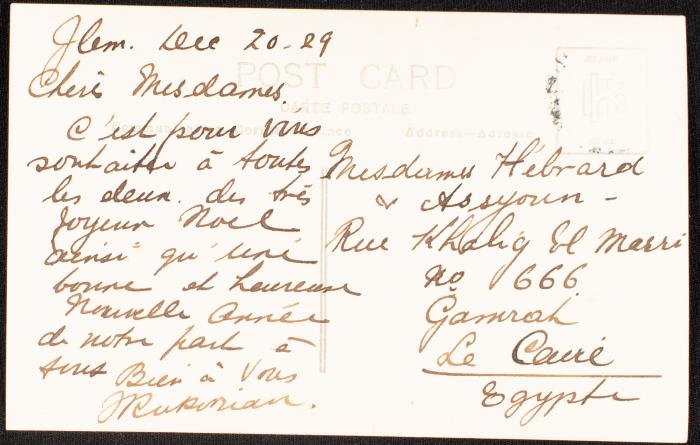 Jlem. Dec 20-29
POST CARD
CARTE POSTALE
Chéis Mesdames.
Address-Adresse
C'est pour vous
souhaiter à toutes
les deux des très
Joyeux Noel
ainsi qu'une
bonne et heureuse
Nouvelle Année
de notre part à
tous Bien à Vous
Mesdames Hébrard
& Assyoun-
Rue Khalig El Masri
No 666
Gamrah
Le Caire
Egypte